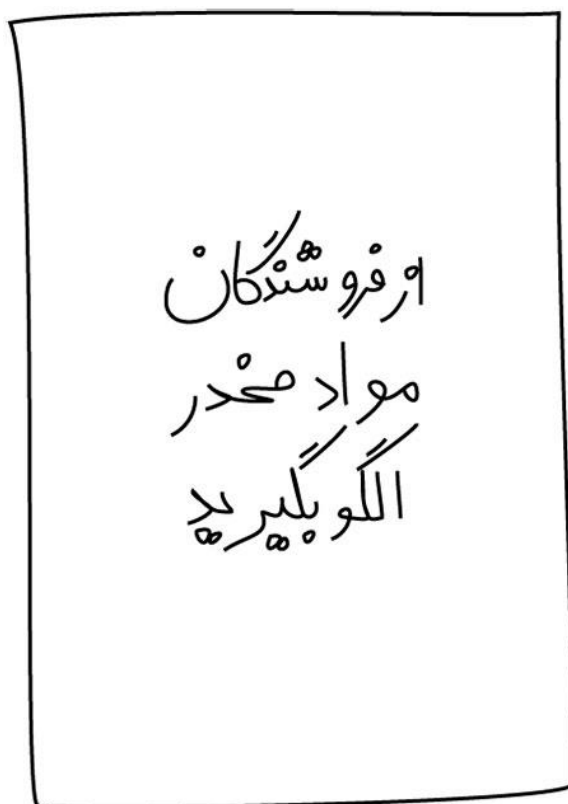 از فروشندگان
مواد مخدر
الگو بگیرید